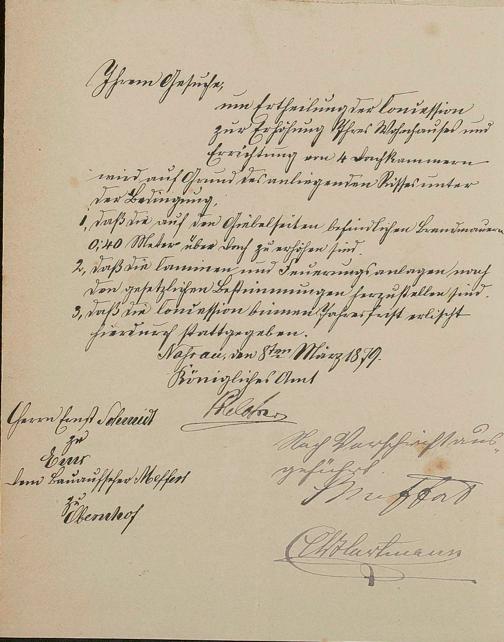 Ihrem Gesuche,
um Ertheilung der Concession
zur Erhöhung Ihres Wohnhauses und
Errichtung von 4 Dachkammern
wird auf Grund des anliegenden Risses unter
der Bedingung,
1, daß die auf den Giebelseiten befindlichen Brandmauern
0,40 Meter über Dach zu erhöhen sind,
2, daß die Caminen und Feuerungsanlagen nach
den gesetzlichen Bestimmungen herzustellen sind.
3, daß die Concession binnen Jahresfrist erlischt
hierdurch stattgegeben.
Nassau, den 8ten März 1879.
Königliches Amt
Herrn Ernst Schmidt
zu
Ems
dem Bauaufseher Moffert
zu
Obernhof
Nach Vorschrift aus-
geführt.
Hartmann